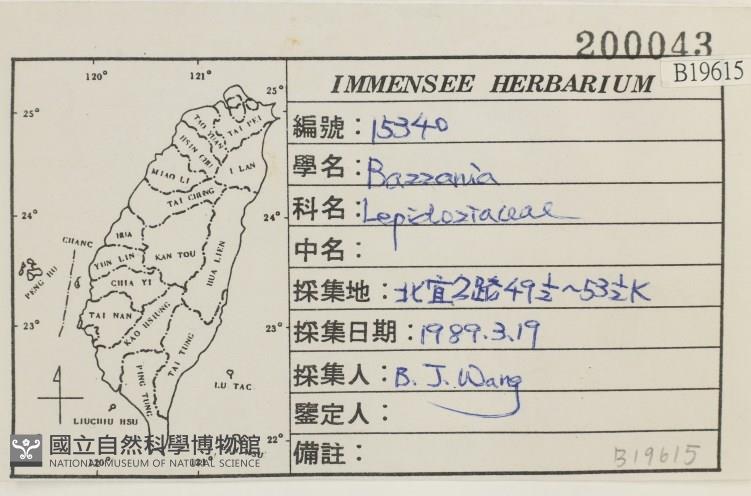 200043
B19615
IMMENSEE HERBARIUM
編號：15340
學名：Bazzania
科名：Lepidoziaceae
中名：
採集地：北宜公路49½~53½K
採集日期：1989.3.19
採集人：B. J. Wang
鑒定人：
備註：
B19615
120° 121°
25° 25°
TAI PEI
TAO YUAN
HSIN CHU
I LAN
MIAO LI
TAI CHUNG
24° 24°
CHANG HUA
HUA LIEN
YUN LIN KAN TOU
PENG HU
CHIA YI
TAI NAN
KAO HSIUNG
23° 23°
TAI TUNG
PING TUNG
LU TAC
LIUCHIU HSU
22°
120° 121°
國立自然科學博物館
NATIONAL MUSEUM OF NATURAL SCIENCE